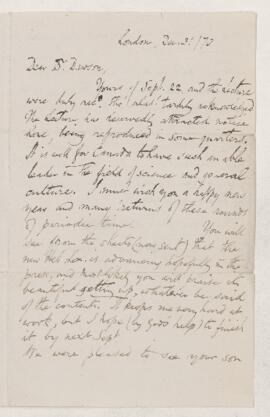 London, Dec. 31/70
Dear Dr. Dawson,
Yours of Sept. 22 and the lecture
were duly recd. tho' rather tardily acknowledged
The lecture has deservedly attracted notice
here, being reproduced in some quarters.
It is well for Canada to have such an able
leader in the field of science and general
culture. I must wish you a happy new
year and many returns of these rounds
of periodic time. You will
see from the sheets (now sent) that the
new is advancing hopefully in the
press, and most likely you will praise its
beautiful getting up, whatever be said
of the contents. It keeps me very hard at
work, but I hope (by God's help) to finish
it by next Sept.
We were pleased to see your son